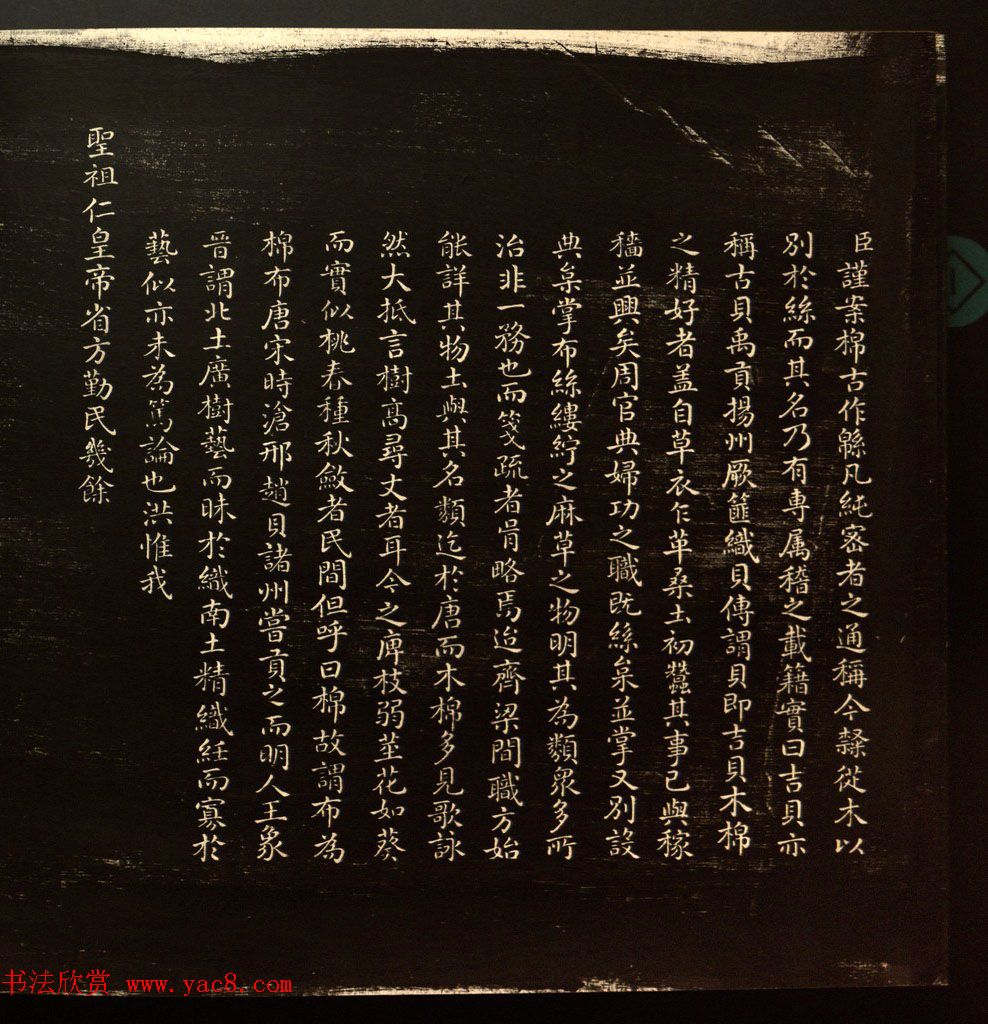 臣謹案棉古作緜凡純密者之通稱今隸從木以
別於絲而其名乃有專属稽之載籍實曰吉貝亦
稱古貝禹貢揚州厥篚織貝傳謂貝即吉貝木棉
之精好者盖自草衣乍革桑土初蠶其事已與稼
穡並興矣周官典婦功之職既絲枲並掌又別設
典枲掌布絲縷紵之麻草之物明其為類眾多所
治非一務也而箋疏者肎略焉迨齊梁間職方始
能詳其物土與其名類迄於唐而木棉多見歌詠
然大抵言樹高尋丈者耳今之庳枝弱莖花如葵
而實似桃春種秋斂者民間但呼曰棉故謂布為
棉布唐宋時滄邢趙貝諸州嘗貢之而明人王象
晉謂北土廣樹藝而昧於織南土精織絍而寡於
藝似亦未為篤論也洪惟我
聖祖仁皇帝省方勤民幾餘
书法欣赏 www.yac8.com